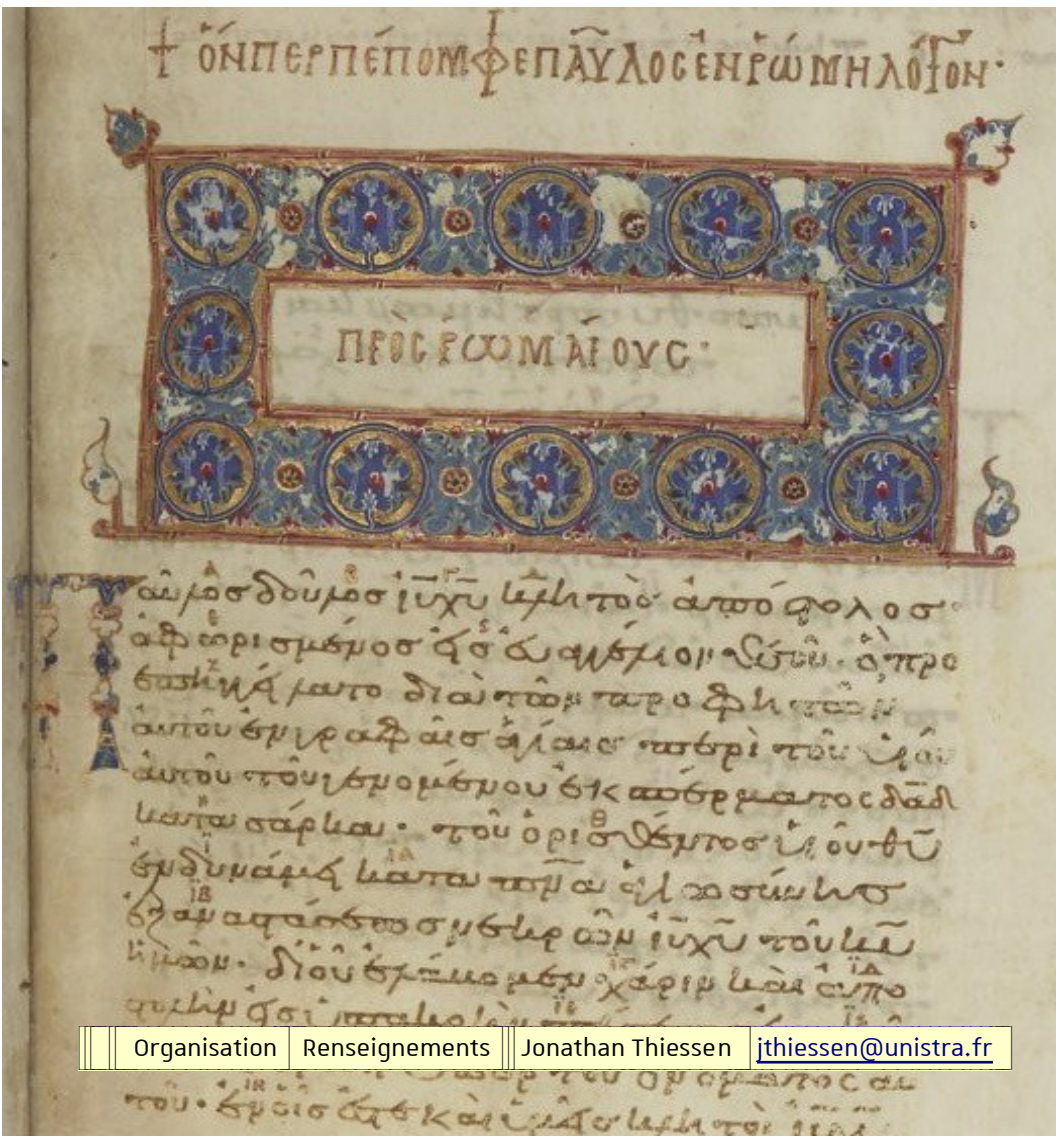 † ὋΝΠΕΡ ΠΕΠΟΜΦΕ ΠΑῦΛΟC ἘΝ ῬΩΜΗ ΛΟΓΟΝ·
ΠΡῸC ῬΩΜΑΊΟΥC·
Παῦλος δοῦλος ἰῦ χῦ κλητὸς ἀπόστολος·
ἀφωρισμένος εἰς εὐαγγέλιον θεοῦ. ὃ προ
επηγγείλατο διὰ τῶν προφητῶν
αὐτοῦ ἐν γραφαῖς ἁγίαις περὶ τοῦ υἱοῦ
αὐτοῦ τοῦ γενομένου ἐκ σπέρματος δᾱδ
κατὰ σάρκα· τοῦ ὁρισθέντος υἱοῦ θῦ
ἐν δυνάμει κατὰ πνᾱ ἁγιωσύνης
ἐξ ἀναστάσεως νεκρῶν ἰῦ χῦ τοῦ κῦ
ἡμῶν· δι οὗ ἐλάβομεν χάριν καὶ ἀπο
στολὴν εἰς ὑπακοὴν
Organisation Renseignements Jonathan Thiessen jthiessen@unistra.fr
τοῦ ὀνόματος αὐ
του· ἐν οἷς ἐστε καὶ ὑμεῖς κλητοὶ